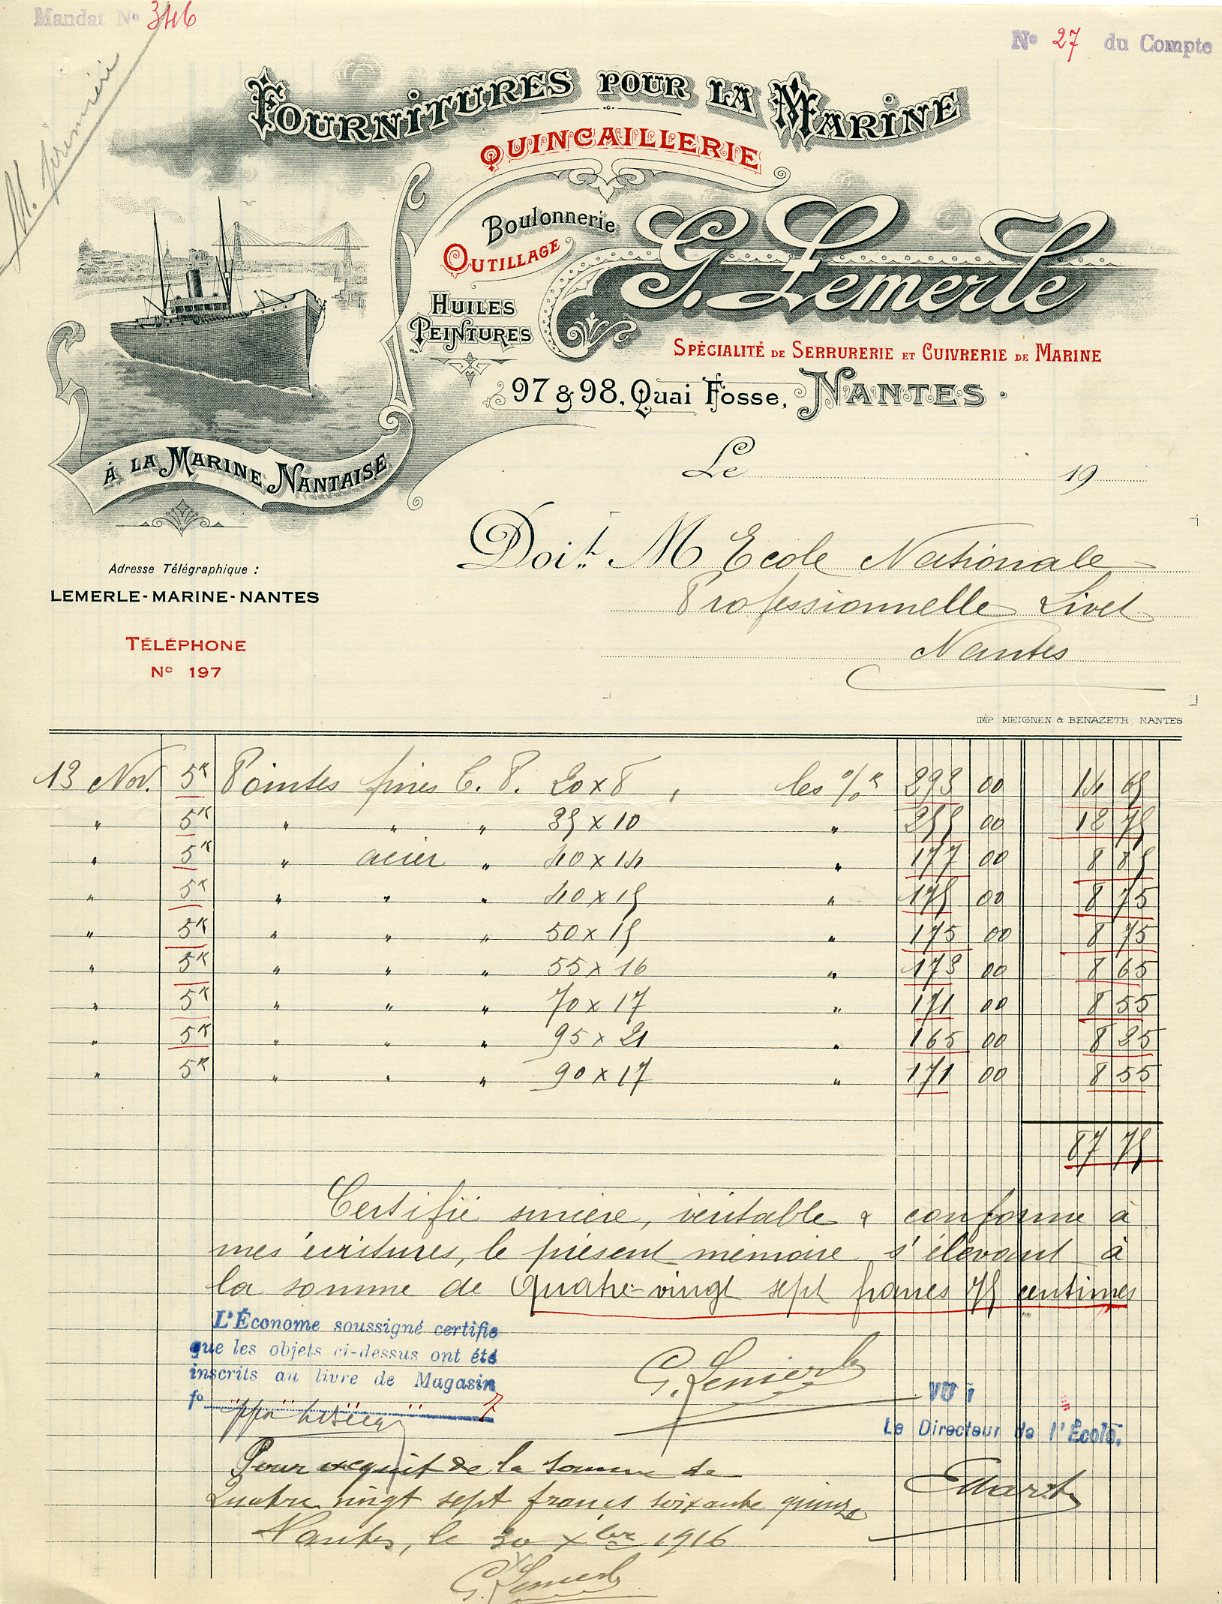 Mandat N° 346
N° 27 du Compte
FOURNITURES POUR LA MARINE
QUINCAILLERIE
Boulonnerie
OUTILLAGE
G. Lemerle
HUILES
PEINTURES
SPÉCIALITÉ DE SERRURERIE ET CUIVRERIE DE MARINE
97 & 98, Quai Fosse, NANTES.
À LA MARINE NANTAISE
Le 19
Doit M Ecole Nationale
Professionnelle Livet
Nantes
Adresse Télégraphique :
LEMERLE-MARINE-NANTES
TÉLÉPHONE
N° 197
IMP MEIGNEN & BENAZETH NANTES
13 Nov. 5K Pointes fines C. P. 20 x 8, les % K 293 00 14 65
" 5K " " " 35 x 10 " 255 00 12 75
" 5K " acier " 40 x 14 " 177 00 8 85
" 5K " " " 40 x 15 " 175 00 8 75
" 5K " " " 50 x 15 " 175 00 8 75
" 5K " " " 55 x 16 " 173 00 8 65
" 5K " " " 70 x 17 " 171 00 8 55
" 5K " " " 95 x 21 " 165 00 8 25
" 5K " " " 90 x 17 " 171 00 8 55
87 75
Certifié sincère, véritable & conforme à
mes écritures, le présent mémoire s'élevant à
la somme de quatre-vingt sept francs 75 centimes
L'Économe soussigné certifie
que les objets ci-dessus ont été
inscrits au livre de Magasin
f° 7
G. Lemerle
VU :
Le Directeur de l'École,
Pour acquit de la somme de
Quatre vingt sept francs soixante quinze
Nantes, le 20 Xbre 1916
G. Lemerle